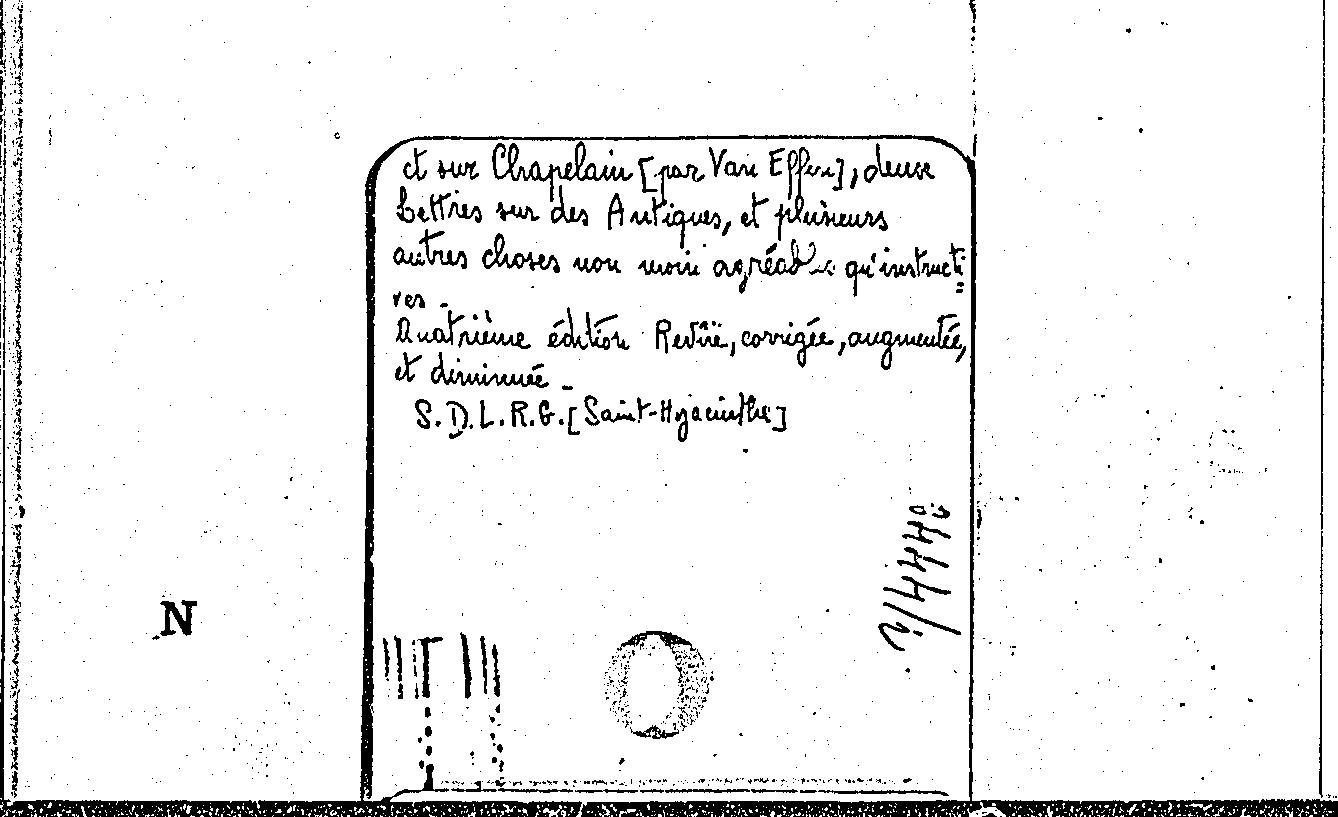 et sur Chapelain [par Van Effen], deux
Lettres sur des Antiques, et plusieurs
autres choses non moin agréables qu'instructi=
ves.
Quatrième édition Revûë, corrigée, augmentée,
et diminuée _
S.D.L.R.G. [Saint-Hyacinthe]
N